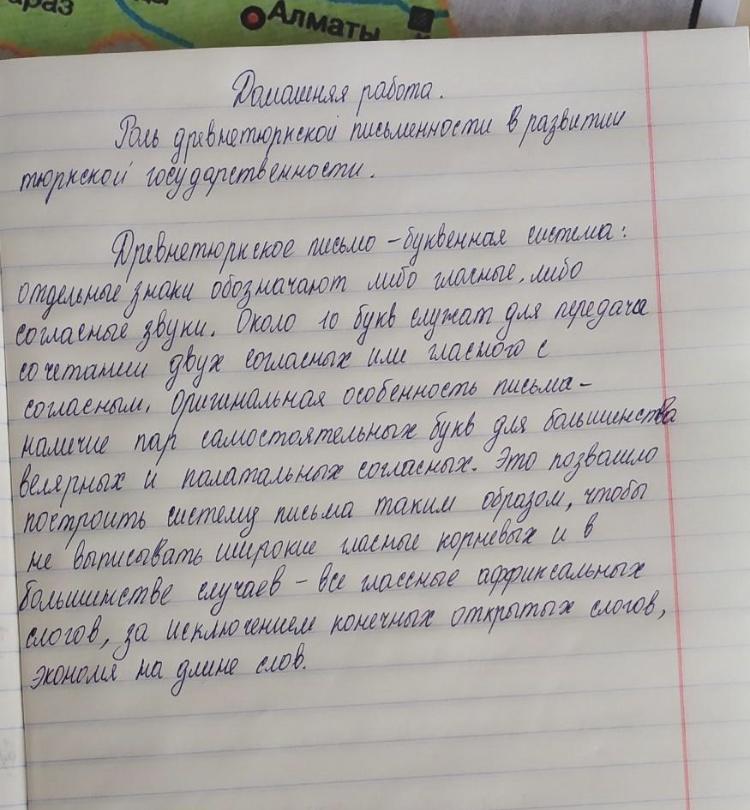 араз
Алматы
Домашняя работа.
Роль древнетюркской письменности в развитии
тюркской государственности.
Древнетюркское письмо – буквенная система:
отдельные знаки обозначают либо гласные, либо
согласные звуки. Около 10 букв служат для передача
сочетании двух согласных или гласного с
согласным. Оригинальная особенность письма –
наличие пар самостоятельных букв для большинства
велярных и палатальных согласных. Это позвашло
построить систему письма таким образом, чтобы
не выписывать широкие гласные корневых и в
большинстве случаев – все глассные аффиксальных
слогов, за исключением конечных открытых слогов,
экономя на длине слов.